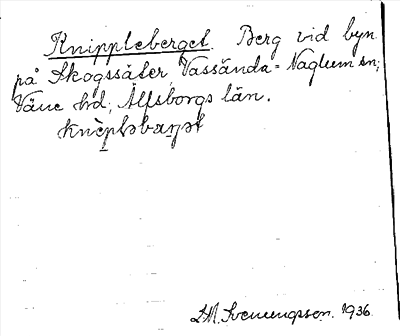 Knippleberget. Berg vid byn
på Skogssäter, Vassända-Naglum sn;
Väne hd; Älfsborgs län.
knèplsbaṛjət
H. Svenungsson. 1936.